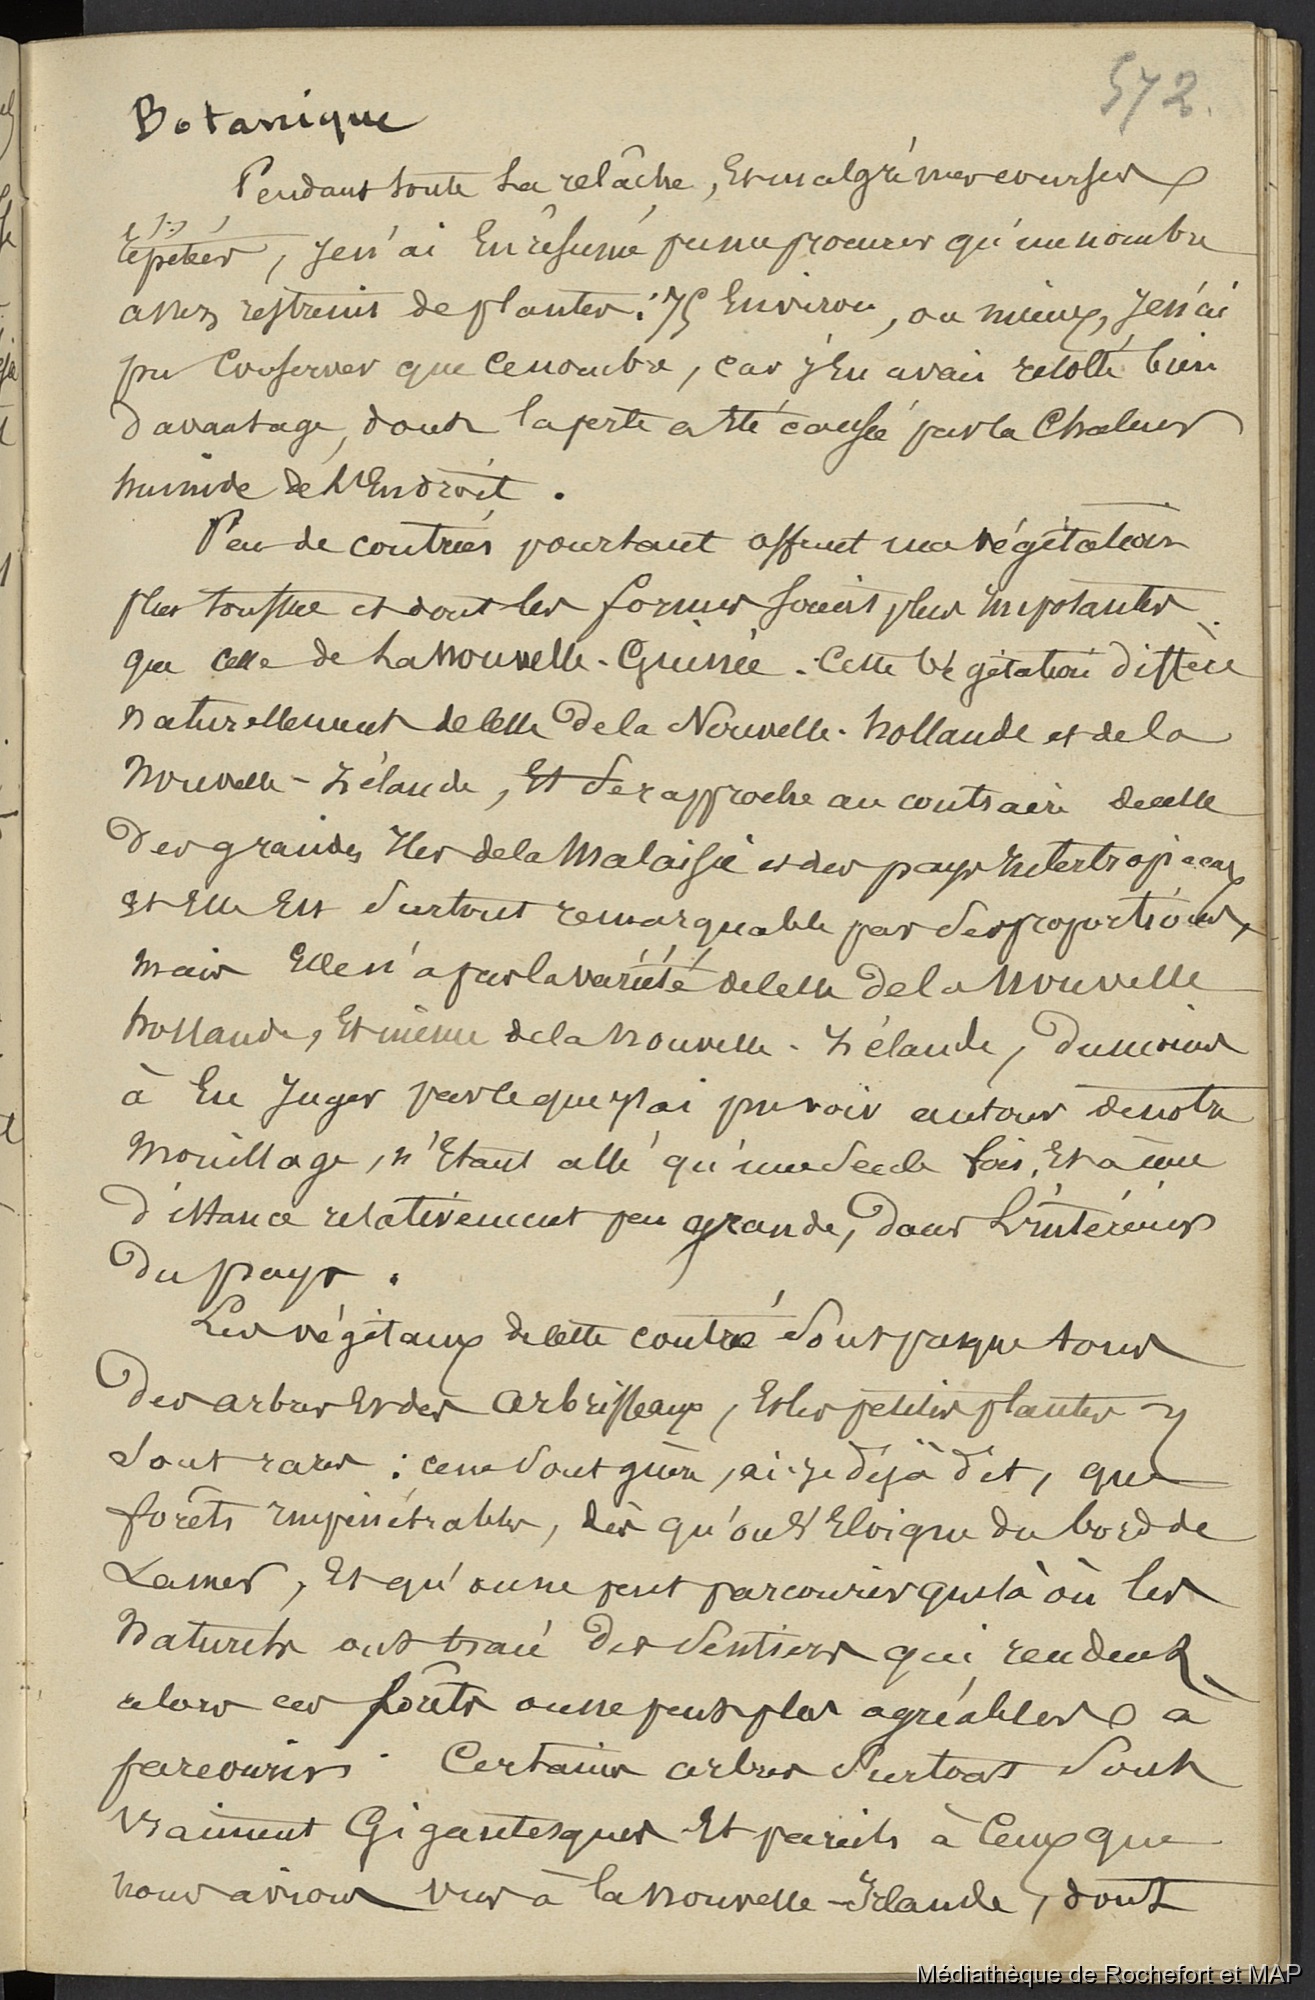 572.
Botanique
Pendant toute la relâche, Et malgré mes courses
répétées, Je n'ai En résumé pu me procurer qu'un nombre
assez restreint de plantes : 75 Environ, ou mieux, Je n'ai
pu Conserver que ce nombre, car j'En avais récolté bien
davantage, dont la perte a été causée par la Chaleur
humide de L'Endroit.
Peu de contrées pourtant offrent une végétation
plus touffue et dont les formes soient plus imposantes
que celle de La Nouvelle-Guinée. Cette végétation diffère
naturellement de celle De la Nouvelle-hollande et de la
Nouvelle-Zélande, Et se rapproche au contraire de celle
Des grandes Iles de la Malaisie et des pays Intertropicaux
et Elle Est surtout remarquable par ses proportions,
mais Elle n'a pas la variété de celle De la Nouvelle
hollande, Et même de la Nouvelle-Zélande, Du moins
à En Juger par ce que J'ai pu voir autour de notre
Mouillage, n'Etant allé qu'une seule fois, Et à une
distance relativement peu grande, Dans L'intérieur
Du pays.
Les végétaux de cette contrée sont presque tous
Des arbres Et des arbrisseaux, Et les petites plantes y
sont rares : ce ne sont guère, ai-je déjà dit, que
forêts Impénétrables, dès qu'on s'Eloigne du bord de
La mer, Et qu'on ne peut parcourir que là où les
Naturels ont tracé Des sentiers qui rendent
alors ces forêts on ne peut plus agréables à
parcourir. Certains arbres surtout sont
vraiment Gigantesques Et pareils à Ceux que
nous avions vus à la Nouvelle-Irlande, dont
Médiathèque de Rochefort et MAP